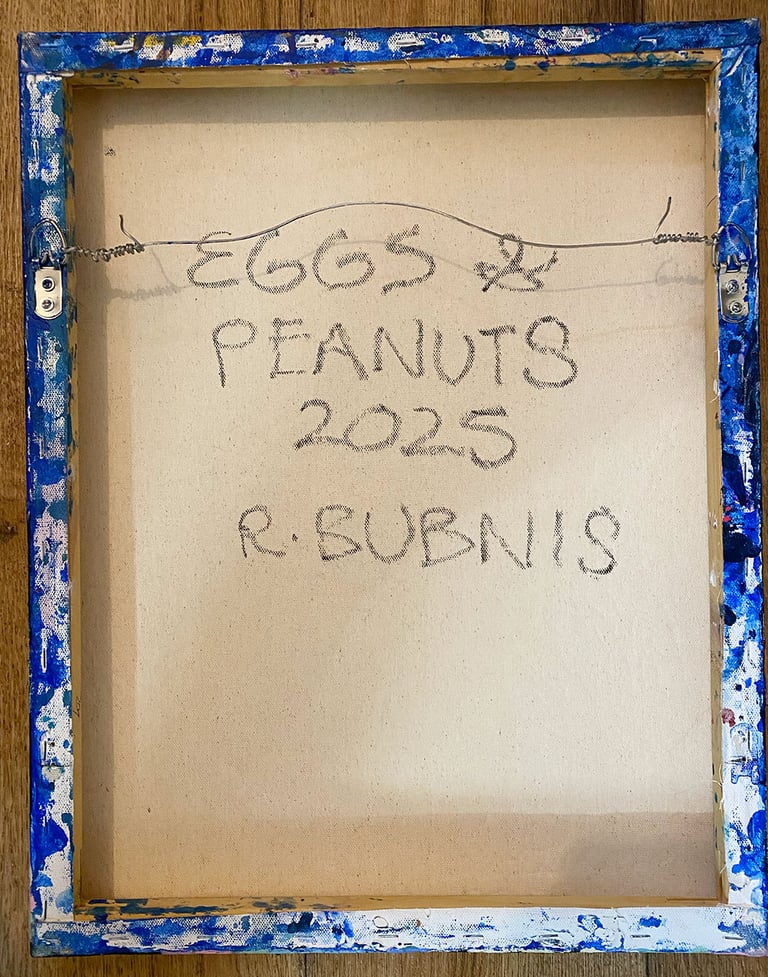 EGGS &
PEANUTS
2025
R. BUBNIS